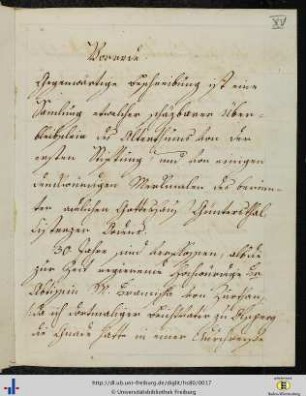 XV
Vorrede.
Gegenwärtige Beschreibung ist eine
Samlung etwelcher schäzbaren Über-
bleibseln des Alterthums von der
ersten Stiftung und von einigen
denkwürdigen Merkmalen des berüm-
ten adlichen Gotteshaus Güntersthal
Cistercer Ordens.
30 Jahre sind verflossen, als die
zur Zeit regierende Hochwürdige Fr.
Abtissin M. Francisca von
da ich dortmaliger Beichtvater zu
die Gnade hatte in einer
http://dl.ub.uni-freiburg.de/diglit/hs80/0017
© Universitätsbibliothek Freiburg
Baden-Württemberg